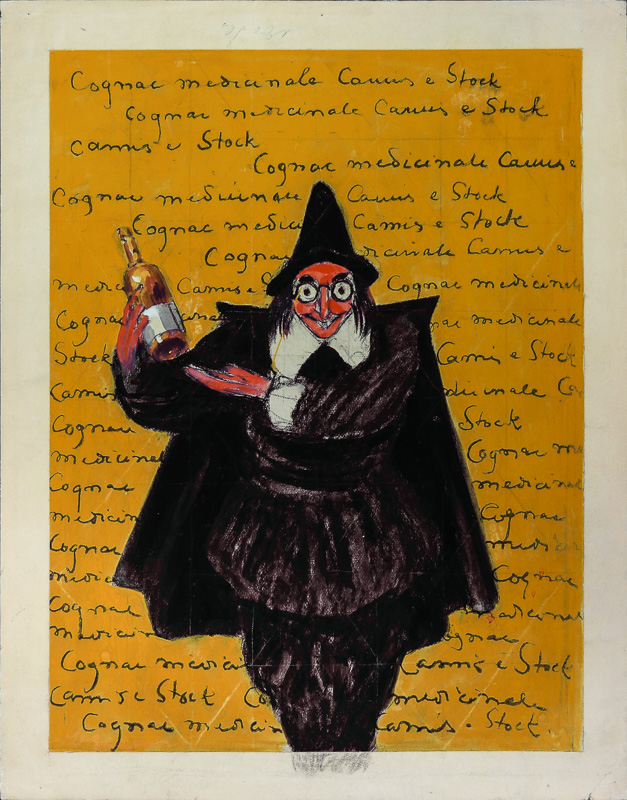 Cognac medicinale Camis e Stock
Cognac medicinale Camis e Stock
Camis e Stock
Cognac medicinale Camis e
Cognac medicinale Camis e Stock
Cognac medici Camis e Stock
Cognac dicinale Camis e
medici Camis e S Cognac medicinale
Cognac nale nac medicinale
Stock Camis e Stock
Camis dicinale Ca
Cognac Stock
medicinal Cognac me
Cognac medicinal
medicin Cognac
Cognac medicin
medic Cognac
Cognac medicinal
medicin ognac
Cognac medicin Camis e Stock
Camis e Stock Co medicinale
Cognac medicin Camis e Stock